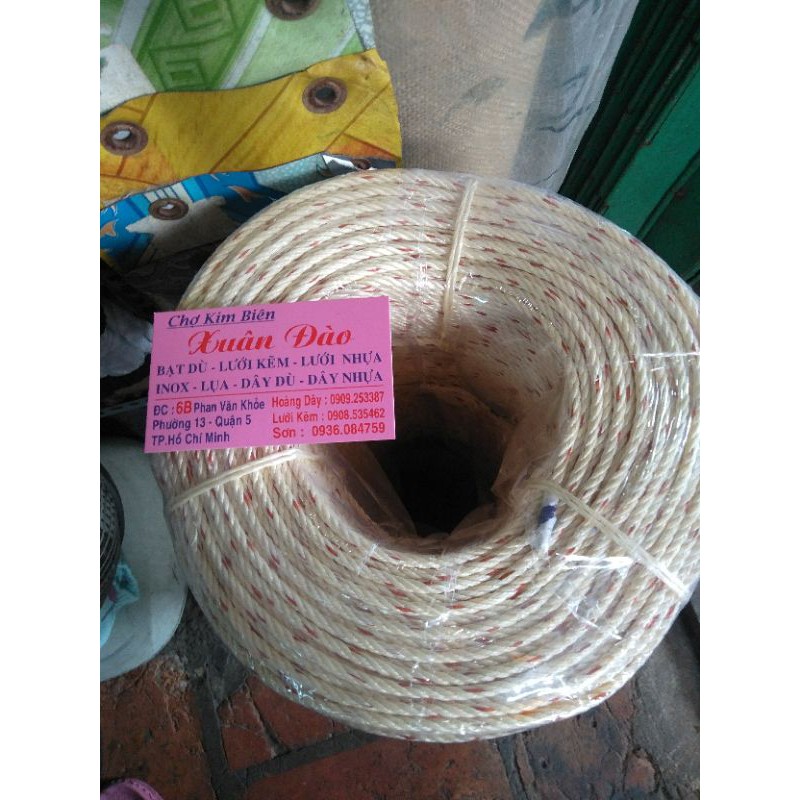 Chợ Kim Biên
Xuân Đào
BẠT DÙ - LƯỚI KẼM - LƯỚI NHỰA
INOX - LỤA - DÂY DÙ - DÂY NHỰA
ĐC : 6B Phan Văn Khỏe
Phường 13 - Quận 5
TP.Hồ Chí Minh
Hoàng Dây : 0909.253387
Lưới Kẽm : 0908.535462
Sơn : 0936.084759